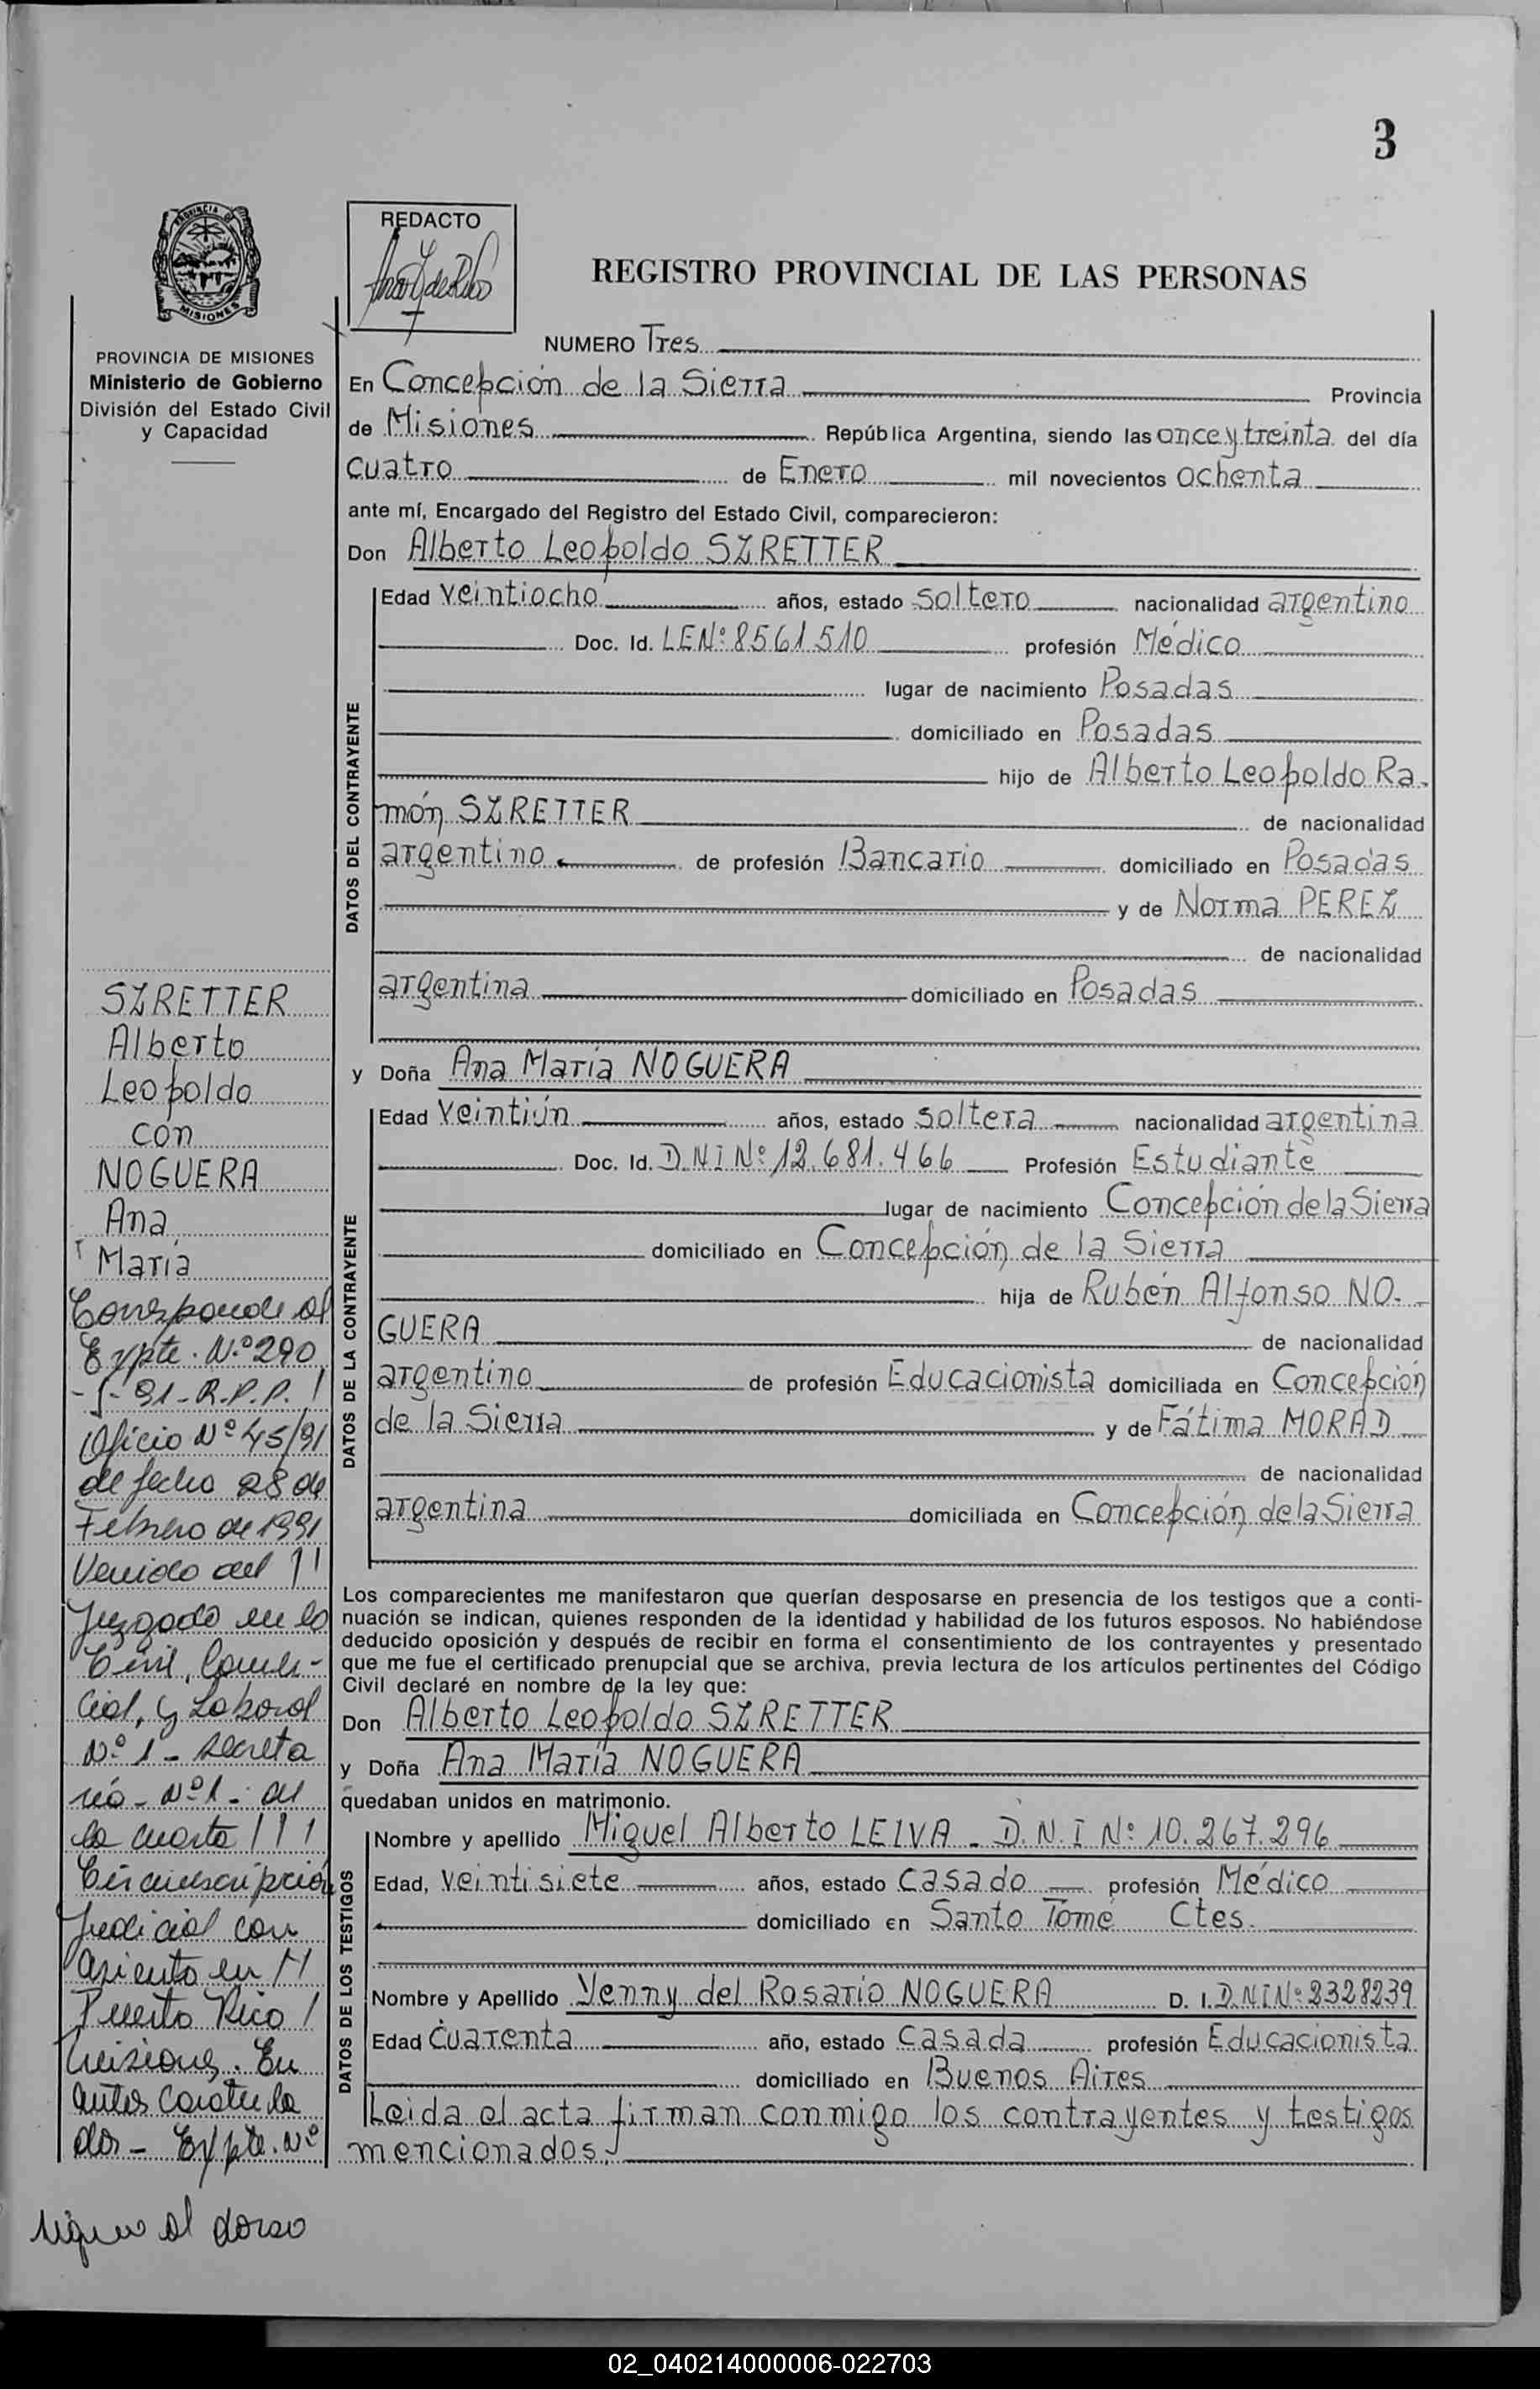 3
PROVINCIA DE
MISIONES
REDACTO
REGISTRO PROVINCIAL DE LAS PERSONAS
PROVINCIA DE MISIONES
Ministerio de Gobierno
División del Estado Civil
y Capacidad
NUMERO Tres
En Concepción de la Sierra Provincia
de Misiones República Argentina, siendo las once y treinta del día
cuatro de Enero mil novecientos ochenta
ante mí, Encargado del Registro del Estado Civil, comparecieron:
Don Alberto Leopoldo SZRETTER
DATOS DEL CONTRAYENTE
Edad veintiocho años, estado soltero nacionalidad argentino
Doc. Id. LENº 8561510 profesión Médico
lugar de nacimiento Posadas
domiciliado en Posadas
hijo de Alberto Leopoldo Ra-
món SZRETTER de nacionalidad
argentino de profesión Bancario domiciliado en Posadas
y de Norma PEREZ
de nacionalidad
argentina domiciliado en Posadas
y Doña Ana María NOGUERA
DATOS DE LA CONTRAYENTE
Edad veintiún años, estado soltera nacionalidad argentina
Doc. Id. DNI Nº 12.681.466 Profesión Estudiante
lugar de nacimiento Concepción de la Sierra
domiciliado en Concepción de la Sierra
hija de Rubén Alfonso NO-
GUERA de nacionalidad
argentino de profesión Educacionista domiciliada en Concepción
de la Sierra y de Fátima MORAD
de nacionalidad
argentina domiciliada en Concepción de la Sierra
Los comparecientes me manifestaron que querían desposarse en presencia de los testigos que a conti-
nuación se indican, quienes responden de la identidad y habilidad de los futuros esposos. No habiéndose
deducido oposición y después de recibir en forma el consentimiento de los contrayentes y presentado
que me fue el certificado prenupcial que se archiva, previa lectura de los artículos pertinentes del Código
Civil declaré en nombre de la ley que:
Don Alberto Leopoldo SZRETTER
y Doña Ana María NOGUERA
quedaban unidos en matrimonio.
DATOS DE LOS TESTIGOS
Nombre y apellido Miguel Alberto LEIVA - D.N.I Nº 10.267.296
Edad, veintisiete años, estado casado profesión Médico
domiciliado en Santo Tomé Ctes.
Nombre y Apellido Yenny del Rosario NOGUERA D. I. D.NI Nº 2328239
Edad cuarenta año, estado casada profesión Educacionista
domiciliado en Buenos Aires
Leida el acta firman conmigo los contrayentes y testigos
mencionados.
SZRETTER
Alberto
Leopoldo
con
NOGUERA
Ana
María
Corresponde al
Expte. Nº 290
91 - R.P.P.
Oficio Nº 45/91
de fecha 28 de
Febrero de 1991
Venido del
Juzgado en lo
Civil, Comer-
cial, y Laboral
Nº 1 - Secreta
ría - Nº 1 - de
la cuarta
Circunscripción
Judicial con
asiento en
Puerto Rico
Misiones. En
autos caratula
dos - Expte. Nº
sigue al dorso
02_040214000006-022703